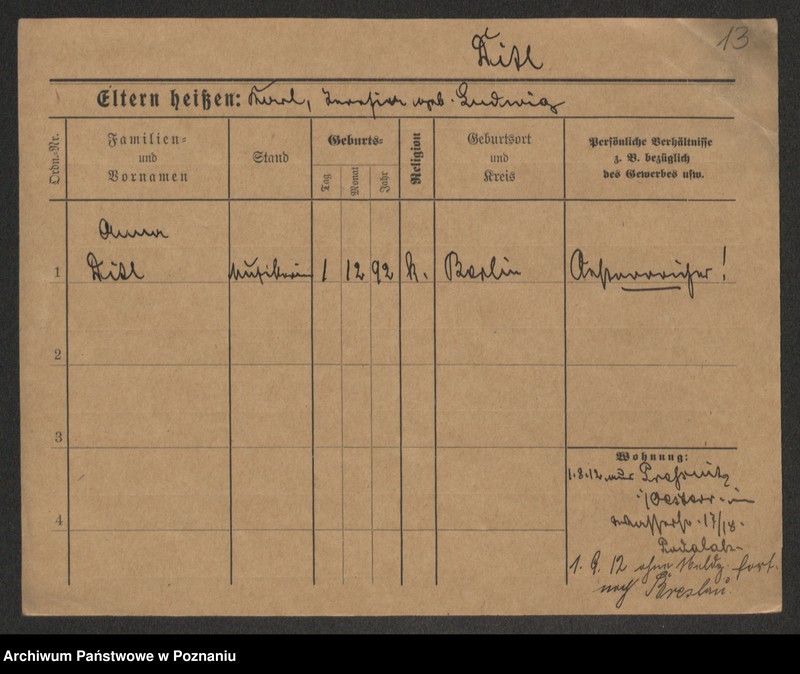 13
Ditl
Eltern heißen: Karl, Theresia geb. Ludwig
Ordn.-Nr.
Familien- und Vornamen
Stand
Geburts-
Tag
Monat
Jahr
Religion
Geburtsort und Kreis
Persönliche Verhältnisse z. B. bezüglich des Gewerbes usw.
Anna
1 Ditl Musikerin 1 12 92 k. Berlin Oesterreicher!
2
3
4
Wohnung:
1.8.12 aus Prossnitz
i/Oesterr. in
17/18.
1. 9. 12 ohne Meldg. fort.
nach Breslau.
Archiwum Państwowe w Poznaniu